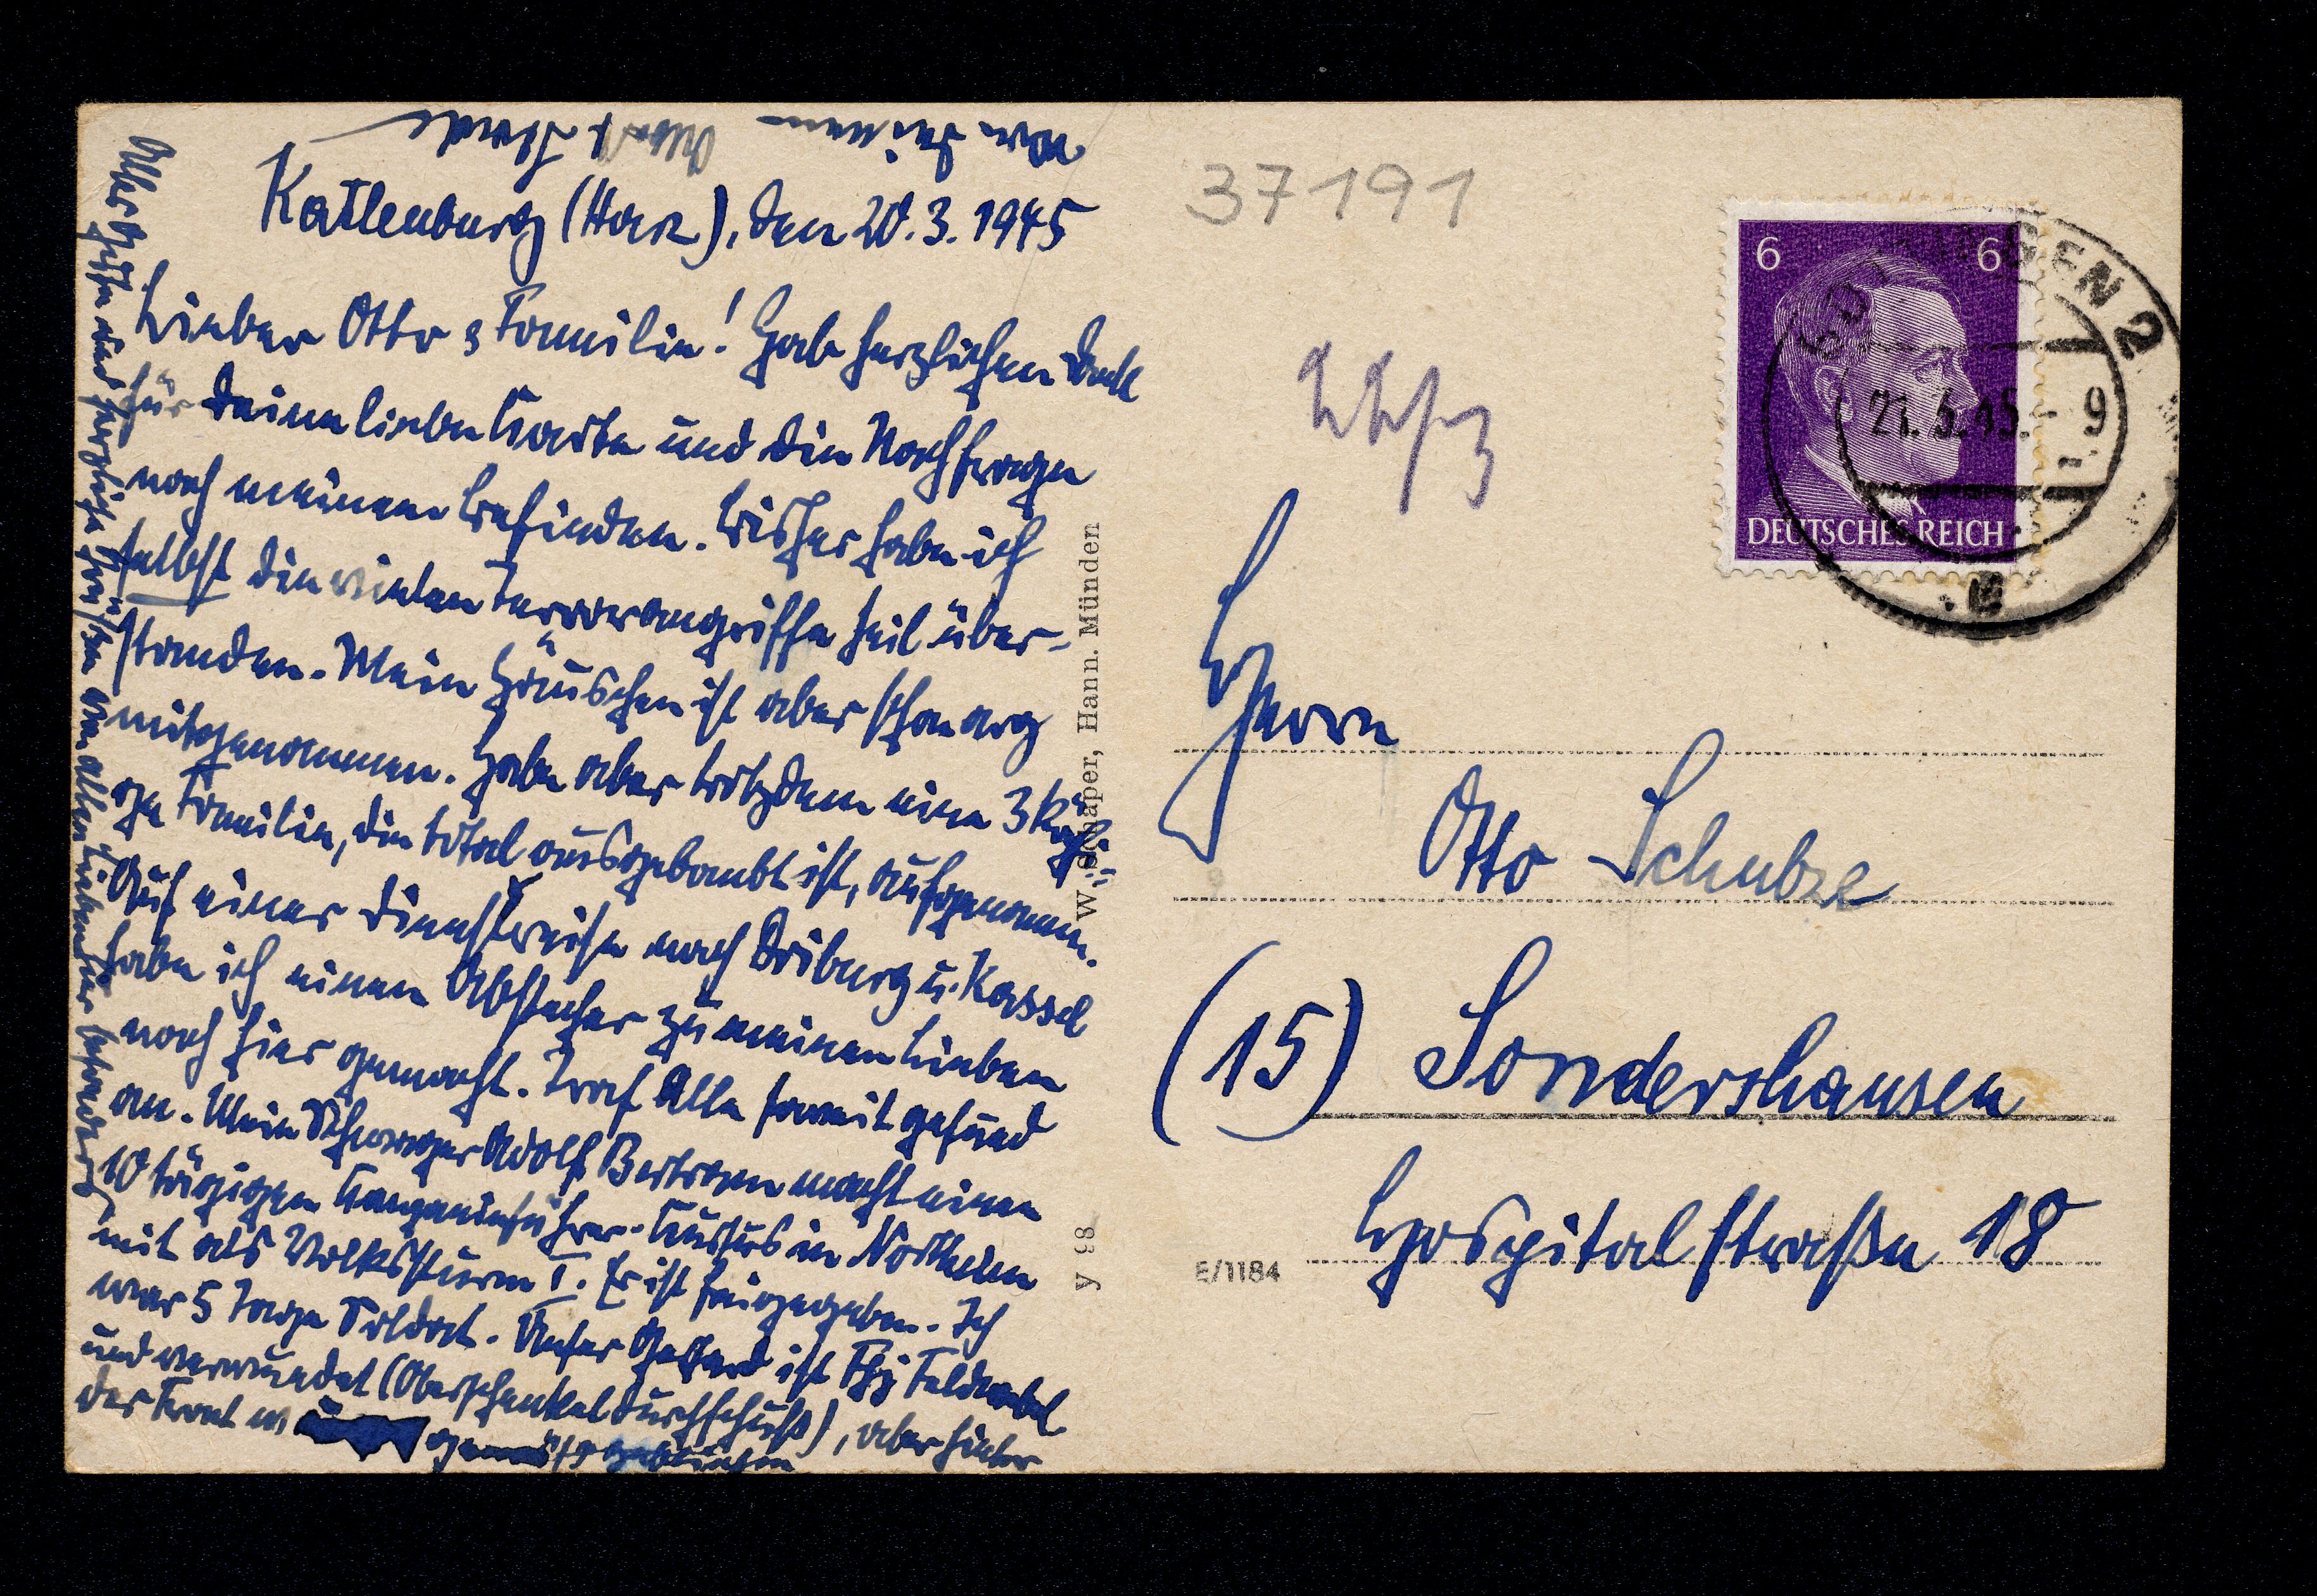 Katlenburg (Harz), den 20.3.1945
Lieber Otto & Familie! Hab herzlichen Dank
für Deine liebe Karte und die Nachfrage
nach meinem Befinden. Bisher habe ich
selbst die vielen Terrorangriffe heil über-
standen. Mein Häuschen ist aber schon arg
mitgenommen. Habe aber trotzdem eine 3 köpfi-
ge Familie, die total ausgebombt ist, aufgenomm.
Auf einer Dienstreise nach Driburg u. Kassel
habe ich einen Abstecher zu meinen Lieben
nach hier gemacht. Traf Alle somit gesund
an. Mein Schwager Adolf Bertram macht einen
10 tägigen Kursus in Northeim
mit als Volkssturm I. Er ist freigegeben. Ich
war 5 Tage Soldat. Unser Gerhard ist Fhj Feldwebel
und verwundet (Oberschenkeldurchschuß), aber hinter
der Front
Alles Gute und herzliche Grüße von allen Lieben hier besonders
von Deinem
37191
6 6
DEUTSCHES REICH
GEN 2
21.3.45.- 9
W. Schaper, Hann. Münden
y 98
Herrn
Otto Schulze
(15) Sondershausen
Hospitalstraße 18
E/1184